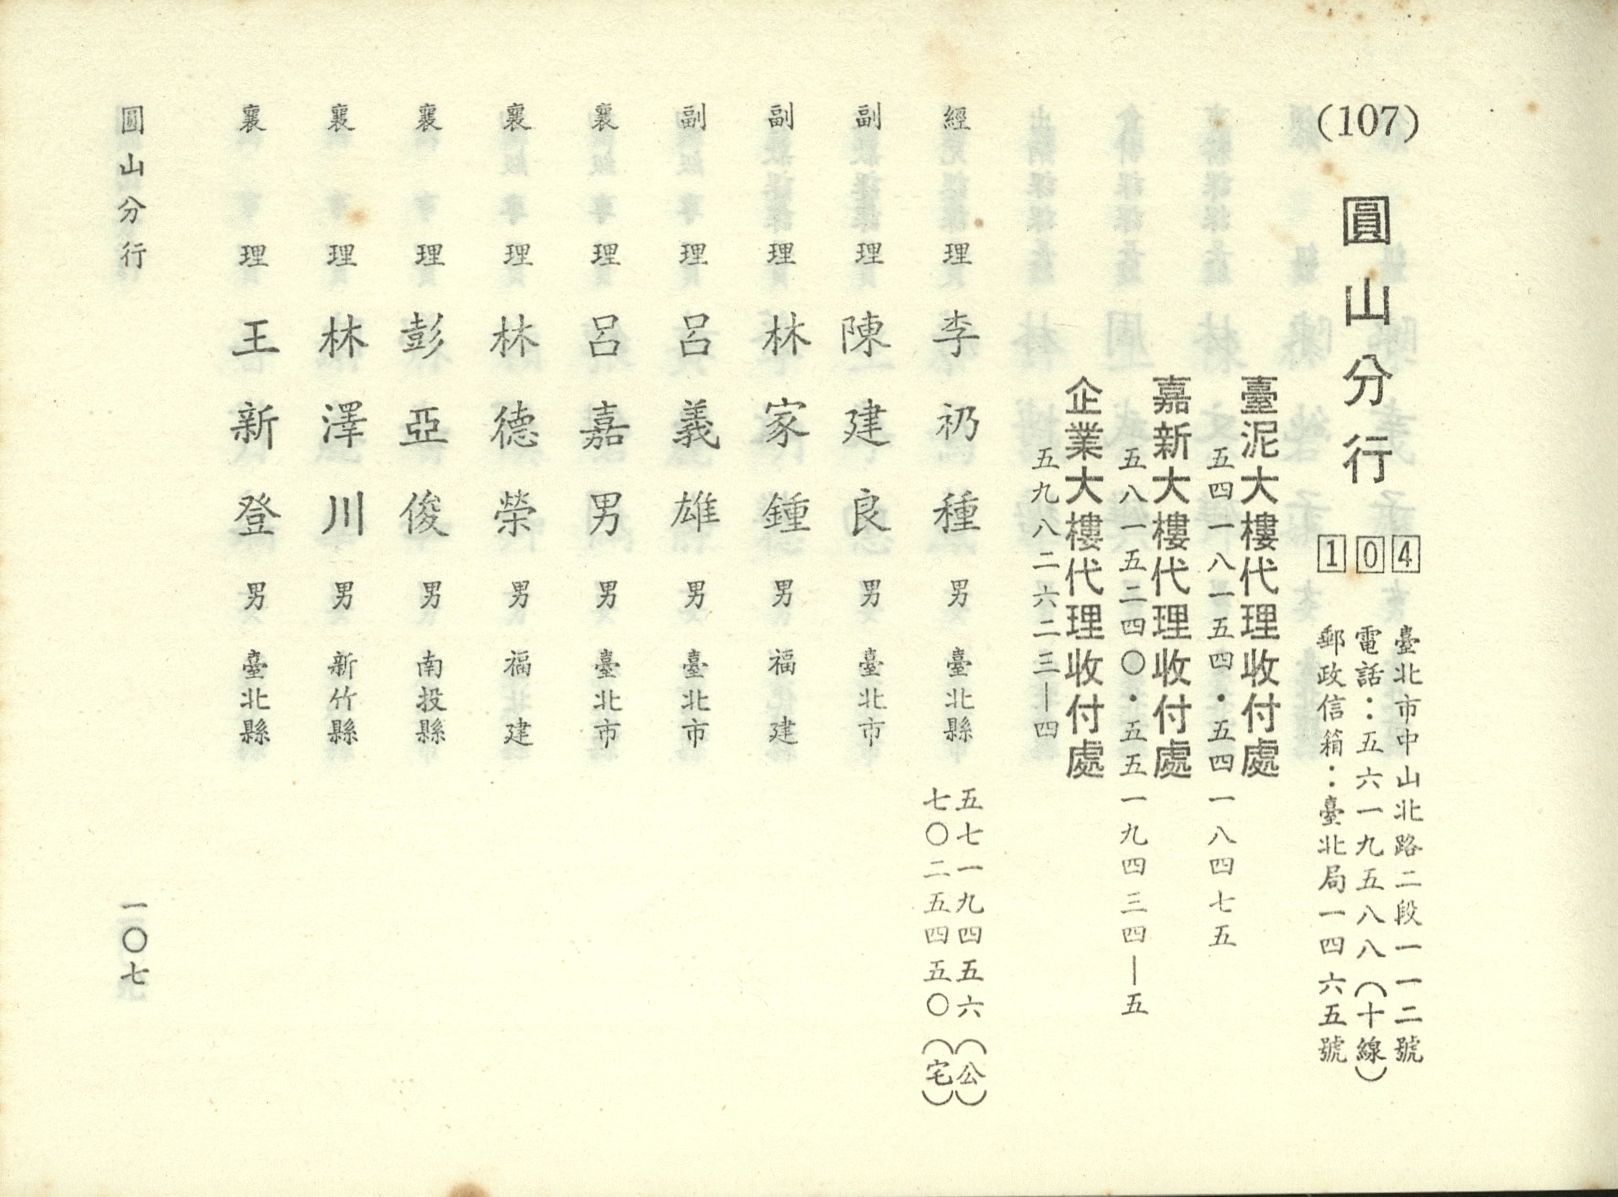 (107)
圓山分行
104
臺北市中山北路二段一一二號
電話：五六一九五八八（十線）
郵政信箱：臺北局一四六五號
臺泥大樓代理收付處
五四一八一五四・五四一八四七五
嘉新大樓代理收付處
五八一五二四〇・五五一九四三四—五
企業大樓代理收付處
五九八二六二三—四
經理 李礽種 男 臺北縣 五七一九四五六（公）
七〇二五四五〇（宅）
副理 陳建良 男 臺北市
副理 林家鍾 男 福建
副理 呂義雄 男 臺北市
襄理 呂嘉男 男 臺北市
襄理 林德榮 男 福建
襄理 彭亞俊 男 南投縣
襄理 林澤川 男 新竹縣
襄理 王新登 男 臺北縣
圓山分行
一〇七